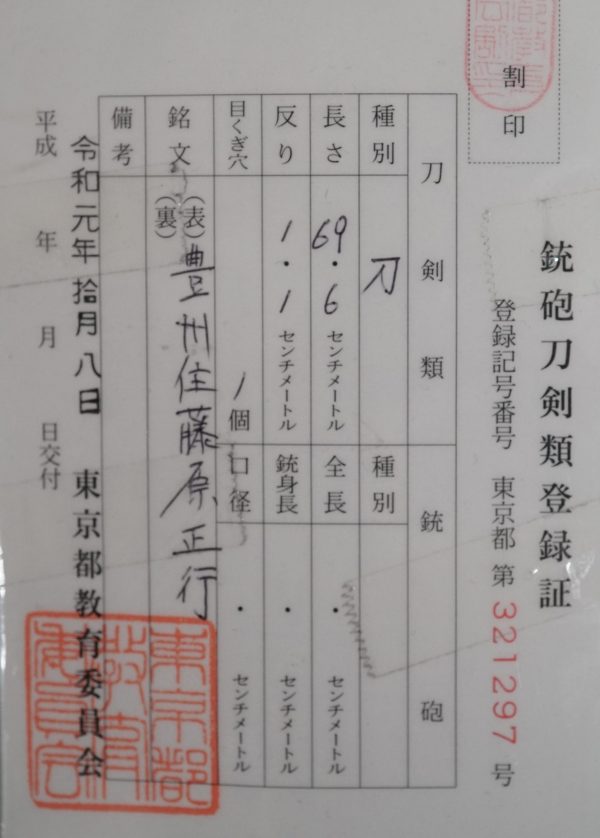 割印
銃砲刀剣類登録証
登録記号番号 東京都 第 321297 号
刀剣類 銃砲
種別 刀 種別
長さ 69.6 センチメートル 全長 ・ センチメートル
反り 1.1 センチメートル 銃身長 ・ センチメートル
目くぎ穴 1 個 口径 ・ センチメートル
銘文 (表) 豊州住藤原正行
(裏)
備考
令和元年拾月八日
平成 年 月 日交付
東京都教育委員会
東京都教育委員会